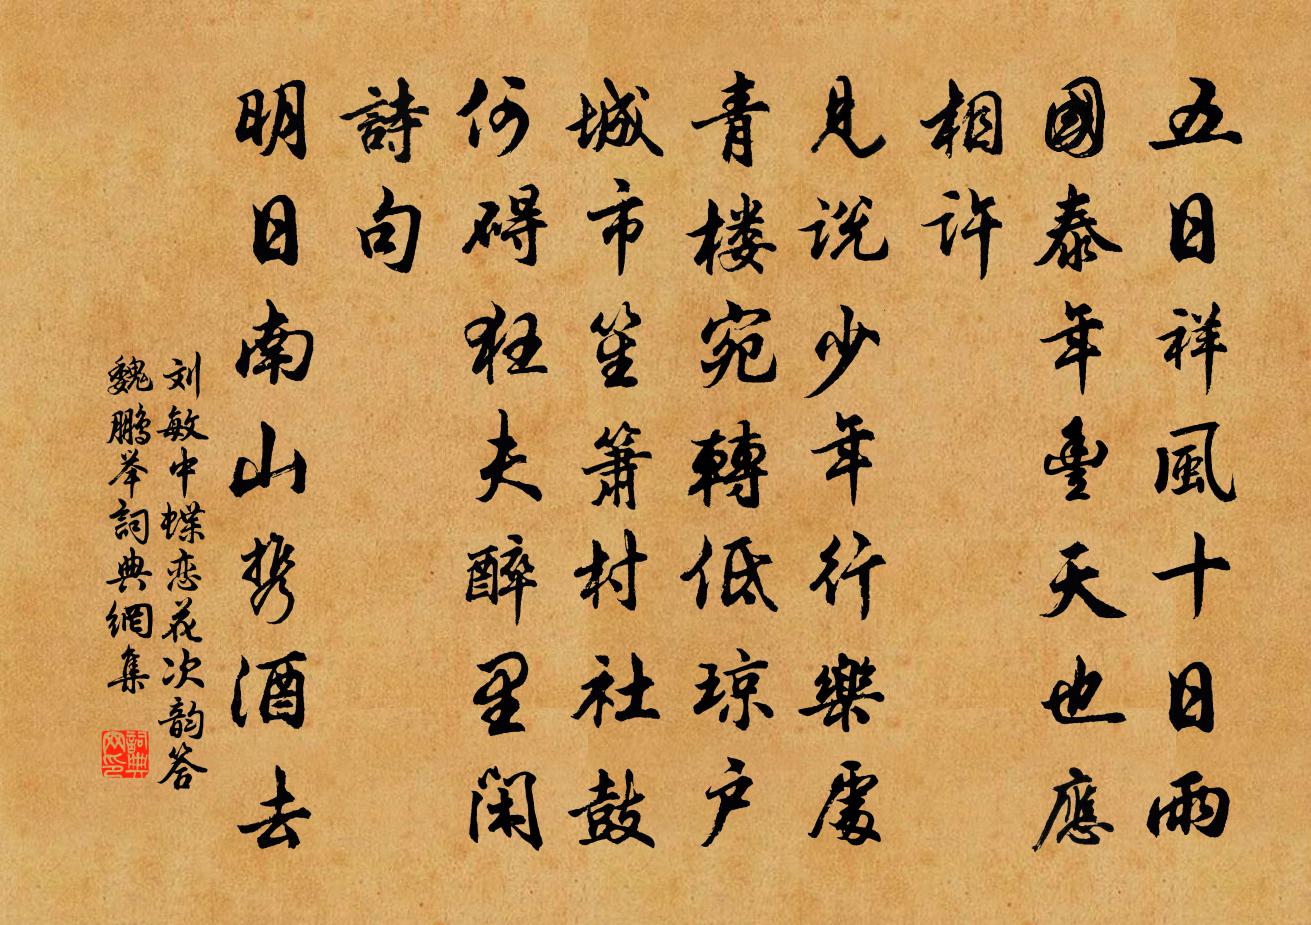 五日祥風十日雨
國泰年豐天也應
相許
見说少年行樂處
青楼宛轉低琼户
城市笙簫村社鼓
何碍狂夫醉里閑
詩句
明日南山携酒去
刘敏中蝶恋花次韵答
魏鹏举詞典網集
詞典網印